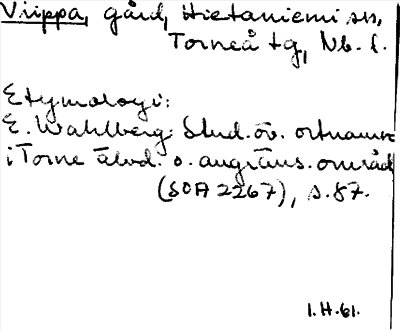 Viippa, gård, Hietaniemi sn,
Torneå tg, Nb. l.
Etymologi:
E. Wahlberg Stud. öv. ortnamn
i Torne älvd. o. angräns. områd
(SOA 2267), s. 87.
1.H.61.